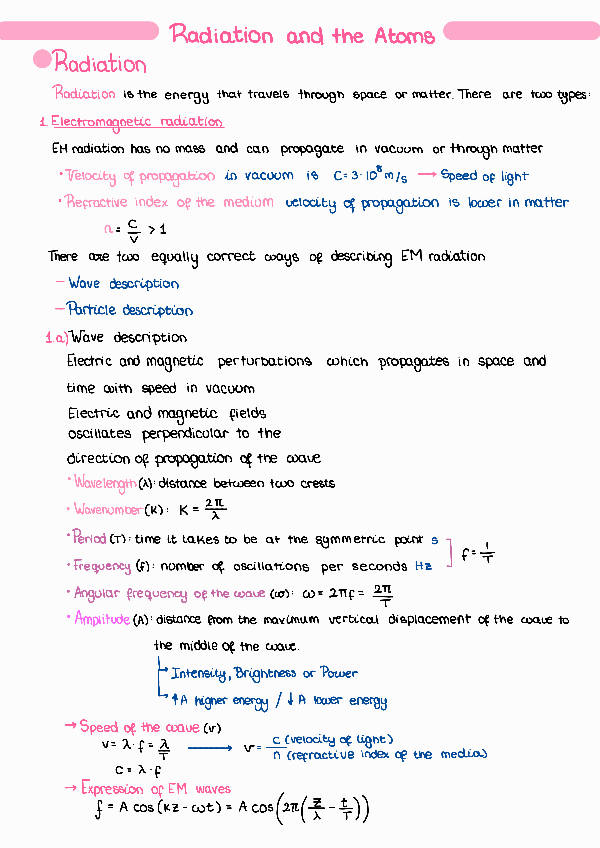 Radiation and the Atoms
Radiation
Radiation is the energy that travels through space or matter. There are two types:
1. Electromagnetic radiation
EM radiation has no mass and can propagate in vacuum or through matter
· Velocity of propagation in vacuum is C=3·10⁸m/s → Speed of light
· Refractive index of the medium velocity of propagation is lower in matter
n = C/V > 1
There are two equally correct ways of describing EM radiation
– Wave description
– Particle description
1.a) Wave description
Electric and magnetic perturbations which propagates in space and
time with speed in vacuum
Electric and magnetic fields
oscillates perpendicular to the
direction of propagation of the wave
· Wavelength (λ): distance between two crests
· Wavenumber (K): K = 2π/λ
· Period (T): time it takes to be at the symmetric point s
· Frequency (f): number of oscillations per seconds Hz
f = 1/T
· Angular frequency of the wave (ω): ω = 2πf = 2π/T
· Amplitude (A): distance from the maximum vertical displacement of the wave to
the middle of the wave.
↳ Intensity, Brightness or Power
↳ ↑A higher energy / ↓A lower energy
→ Speed of the wave (v)
v = λ·f = λ/T → v = c (velocity of light) / n (refractive index of the media)
C = λ·f
→ Expression of EM waves
f = A cos(kz - ωt) = A cos(2π(z/λ - t/T))